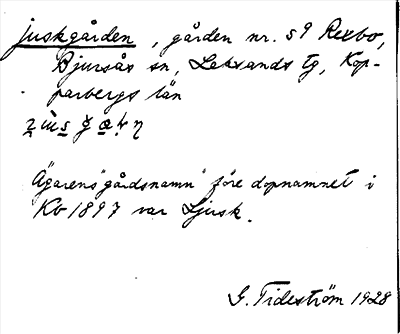 juskgården, gården nr. 59 Rexbo,
Bjursås sn, Leksands tg, Kop-
parbergs län
Ägarens "gårdsnamn" före dopnamnet i
Kb 1897 var Ljusk.
G. Tideström 1928